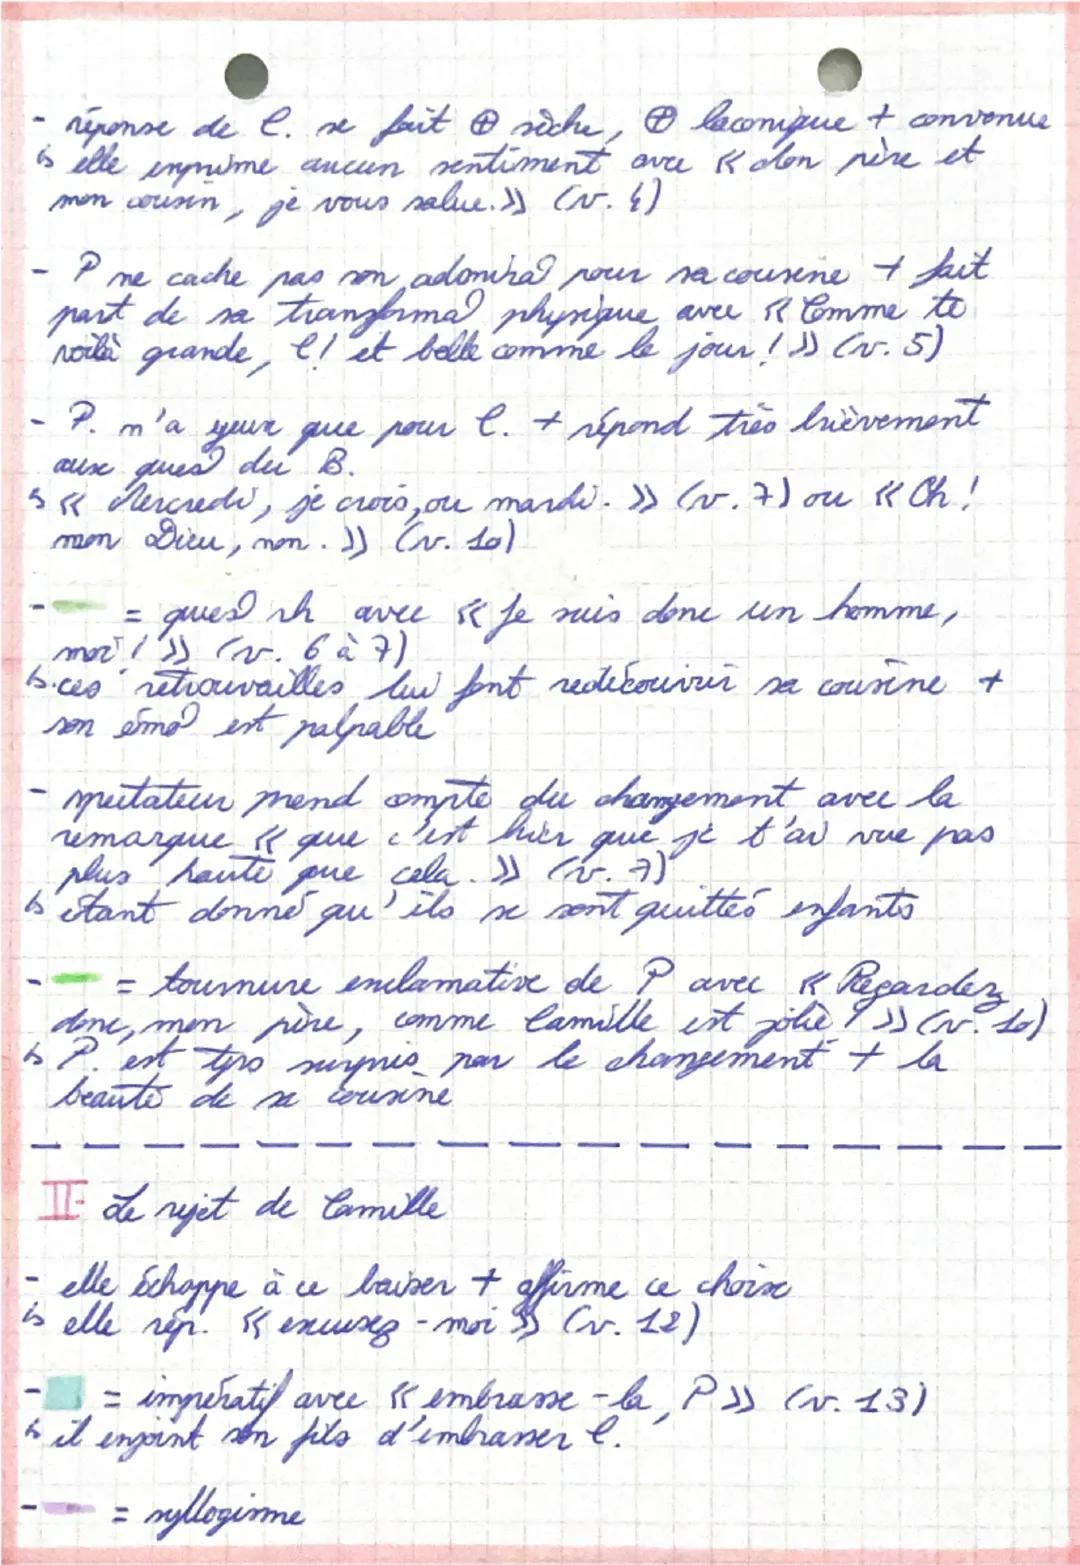 - réponse de C. se fait ⊕ sèche, ⊕ laconique + convenue
↳ elle exprime aucun sentiment avec « Mon père et
mon cousin, je vous salue. » (v. 4)
- P ne cache pas son admira° pour sa cousine + fait
part de sa transforma° physique avec « Comme te
voilà grande, C! et belle comme le jour ! » (v. 5)
- P. n'a yeux que pour C. + répond très brièvement
aux ques° du B.
↳ « Mercredi, je crois, ou mardi. » (v. 7) ou « Oh !
mon Dieu, non. » (v. 10)
- = ques° rh avec « Je suis donc un homme,
moi ! » (v. 6 à 7)
↳ ces retrouvailles lui font redécouvrir sa cousine +
son émo° est palpable
- spectateur prend compte du changement avec la
remarque « que c'est hier que je t'ai vue pas
plus haute que cela. » (v. 7)
↳ étant donné qu'ils se sont quittés enfants
- = tournure exclamative de P avec « Regardez
donc, mon père, comme Camille est jolie ! » (v. 10)
↳ P. est tjrs surpris par le changement + la
beauté de sa cousine
II- Le rejet de Camille
- elle échappe à ce baiser + affirme ce choix
↳ elle rép. « excusez-moi » (v. 12)
- = impératif avec « embrasse-la, P » (v. 13)
↳ il enjoint son fils d'embrasser C.
- = syllogisme